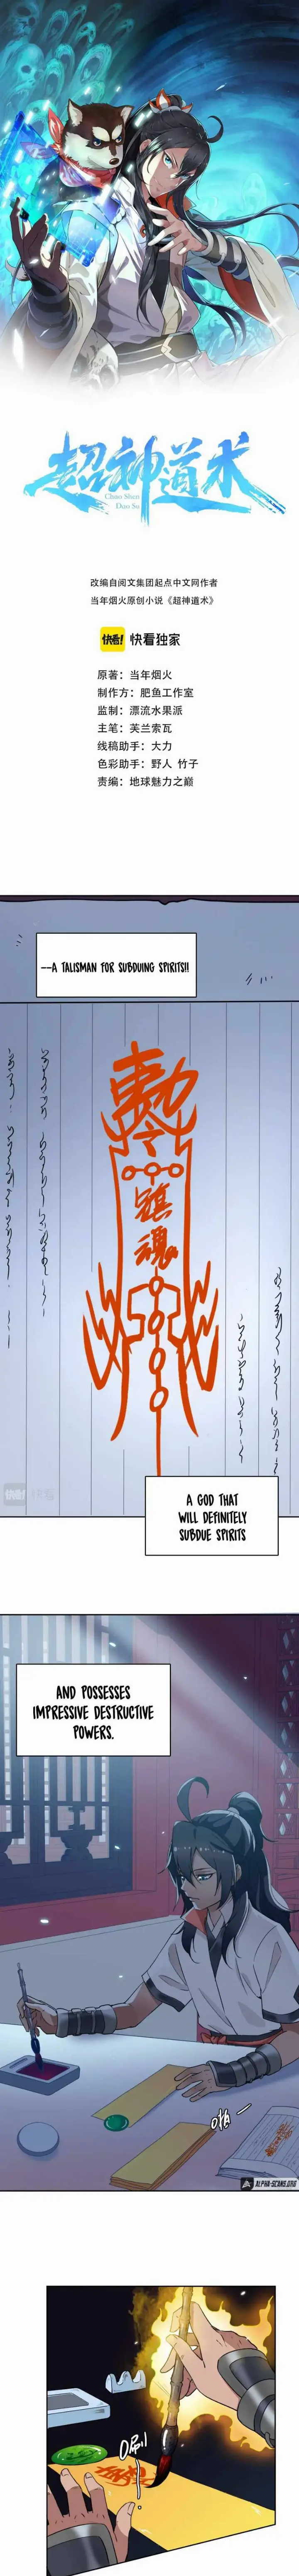 超神道术
Chao Shen
Dao Su
改编自阅文集团起点中文网作者
当年烟火原创小说《超神道术》
快看! 快看独家
原著：当年烟火
制作方：肥鱼工作室
监制：漂流水果派
主笔：芙兰索瓦
线稿助手：大力
色彩助手：野人 竹子
责编：地球魅力之巅
--A TALISMAN FOR SUBDUING SPIRITS!!
敕
令
鎮
魂
快看! 快看
A GOD THAT
WILL DEFINITELY
SUBDUE SPIRITS
AND POSSESSES
IMPRESSIVE DESTRUCTIVE
POWERS.
ALPHA-SCANS.ORG